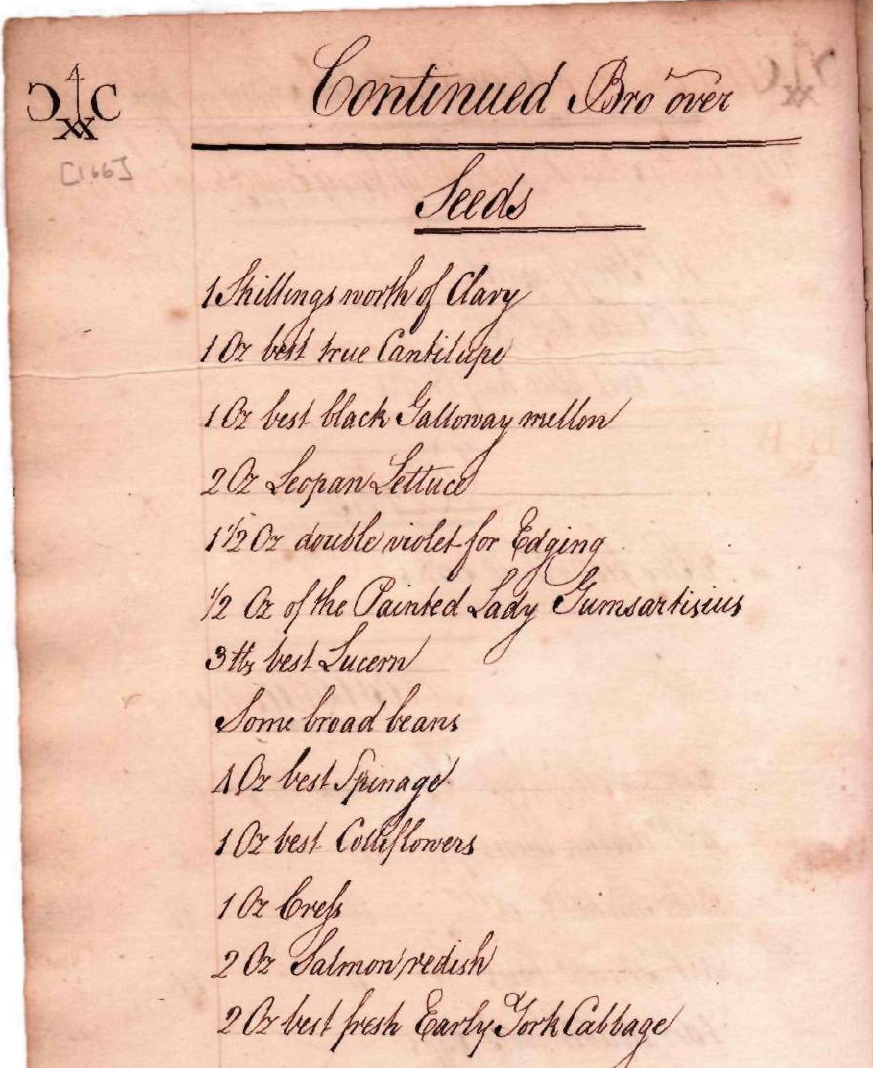 Continued Bro over
[166]
Seeds
1 Shillings worth of Clary
1 Oz best true Cantilupe
1 Oz best black Galloway mellon
2 Oz Leopan Lettuce
1 1/2 Oz double violet for Edging
1/2 Oz of the Painted Lady Gumsartisius
3 lbs best Lucern
Some broad beans
4 Oz best Spinage
1 Oz best Colliflowers
1 Oz Cress
2 Oz Salmon redish
2 Oz best fresh Early York Cabbage